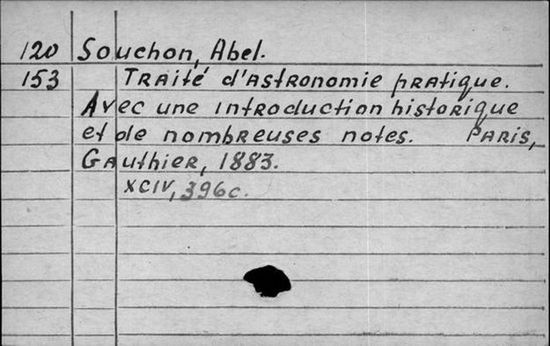 120 Souchon, Abel.
153 Traité d'astronomie pratique.
Avec une introduction historique
et de nombreuses notes. Paris,
Gauthier, 1883.
XCIV, 396c.